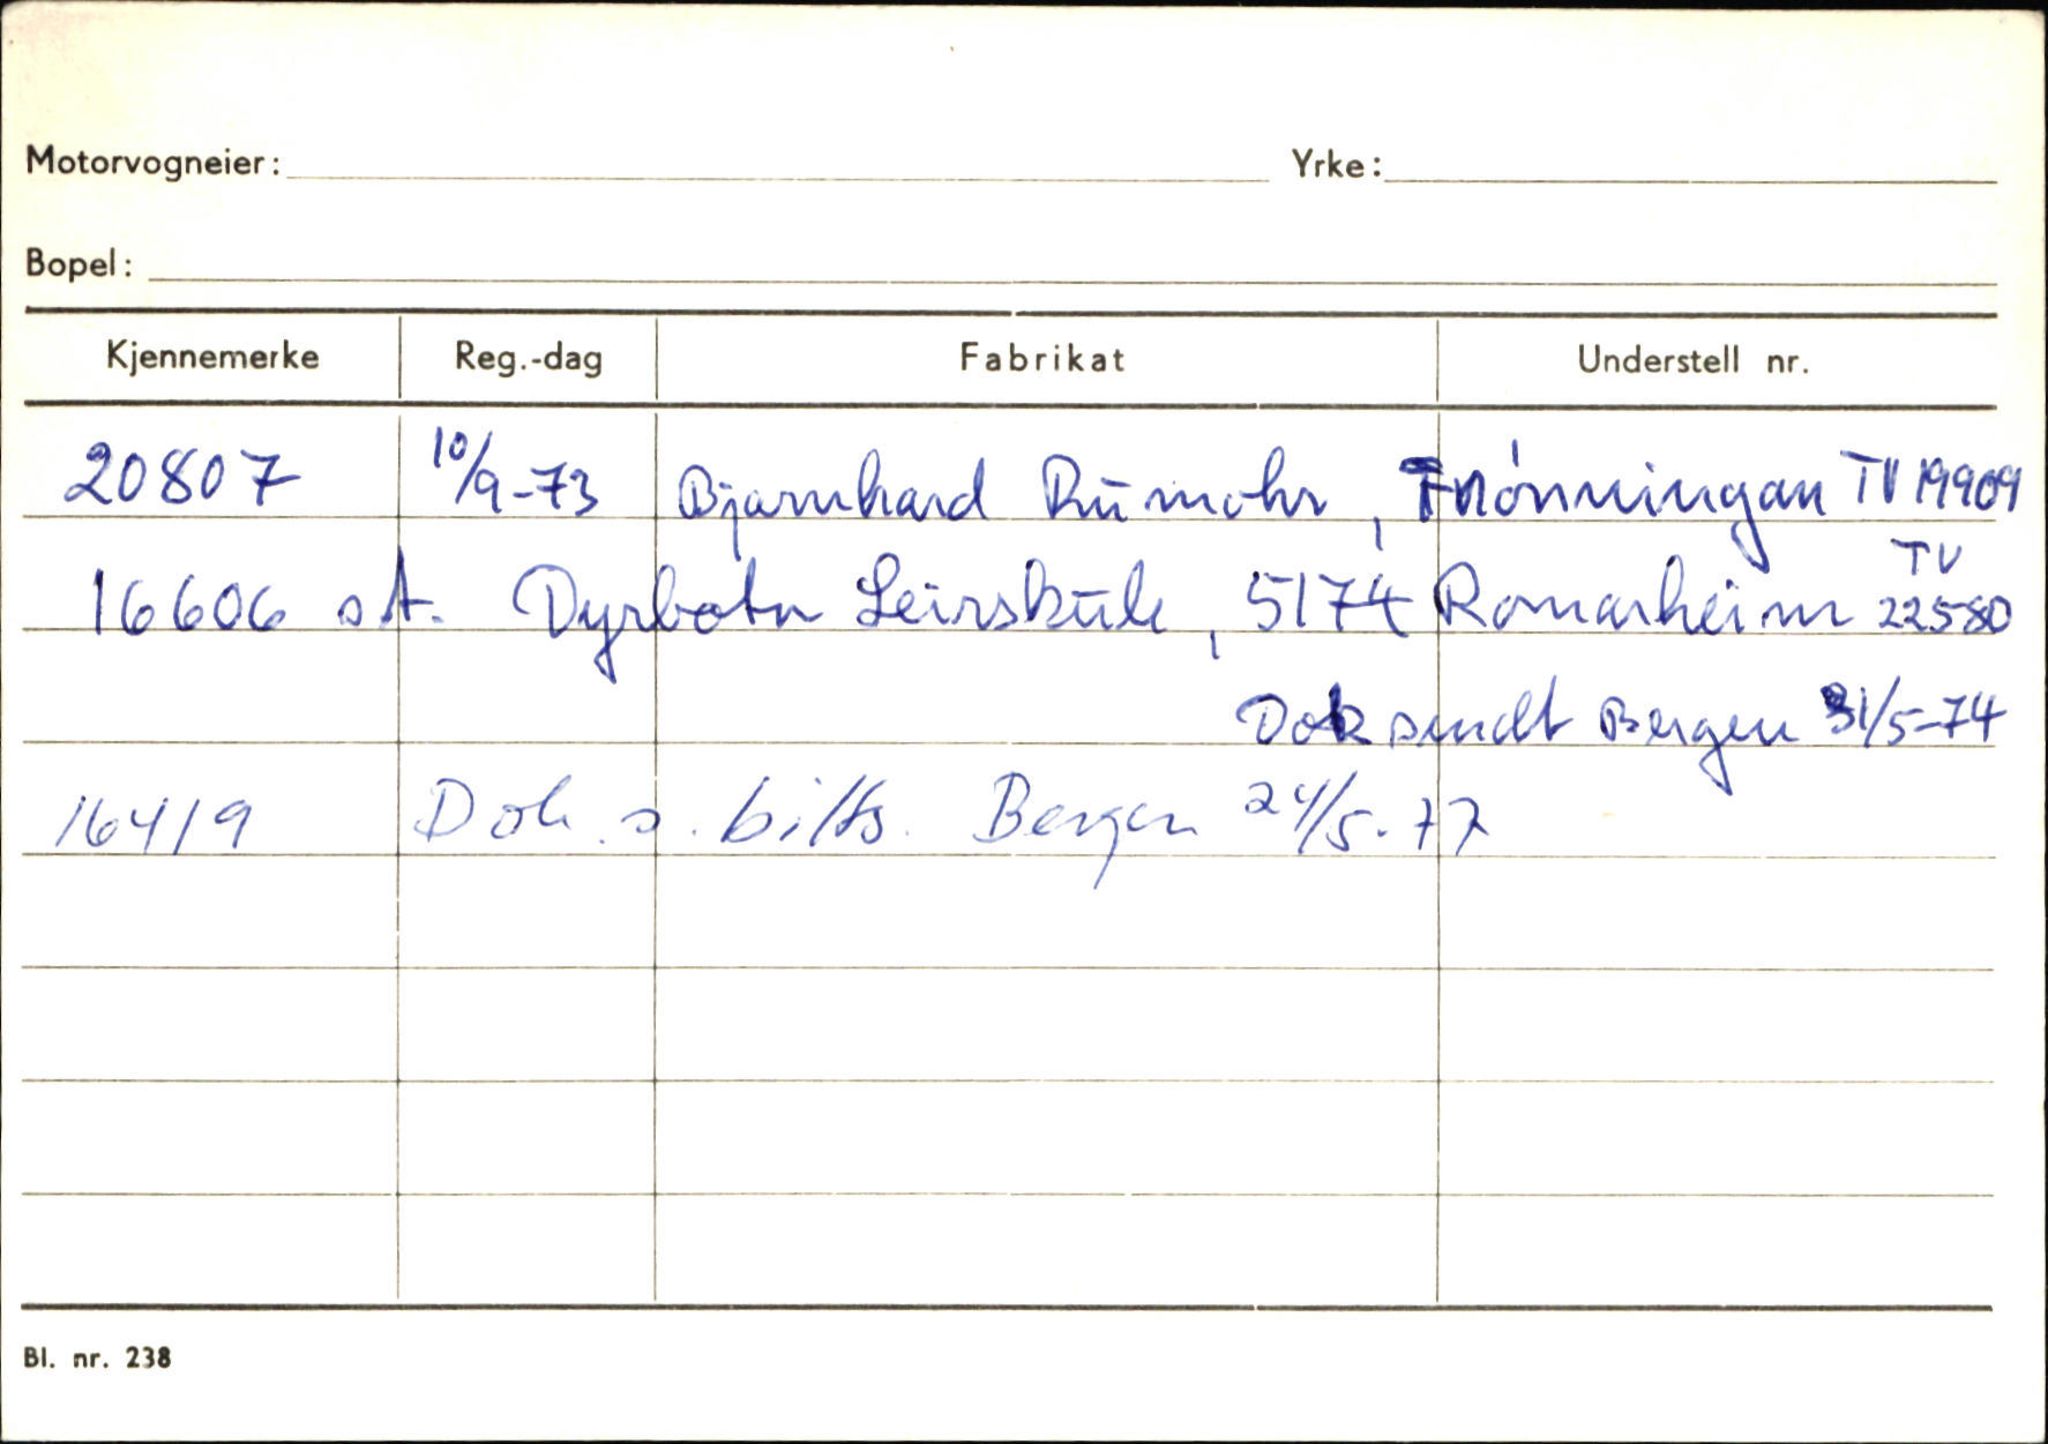 Motorvogneier: Yrke:
Bopel:
Kjennemerke Reg.-dag Fabrikat Understell nr.
20807 10/9-73 Bjarnhard Rumohr, Frønningan TV 19909
16606 st. Dyrbotn Leirskule, 5174 Romarheim TV 22580
Dok sendt Bergen 31/5-74
16419 Dok. s. bilts. Bergen 24/5-77
Bl. nr. 238